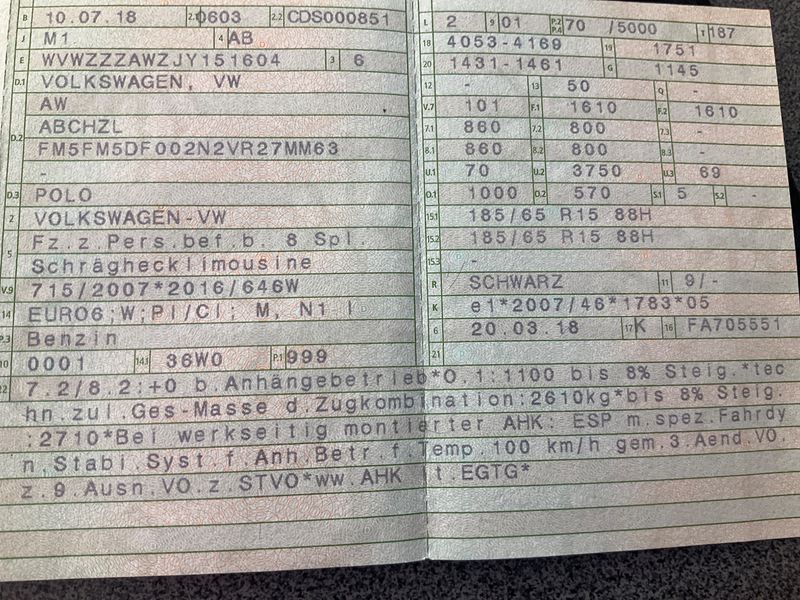 B 10.07.18 2.1 0603 2.2 CDS000851
J M1 4 AB
E WVWZZZAWZJY151604 3 6
D.1 VOLKSWAGEN, VW
AW
D.2 ABCHZL
FM5FM5DF002N2VR27MM63
-
D.3 POLO
2 VOLKSWAGEN-VW
5 Fz.z.Pers.bef.b. 8 Spl.
Schräghecklimousine
V.9 715/2007*2016/646W
14 EURO6;W;PI/CI; M, N1 I
P.3 Benzin
10 0001 14.1 36W0 P.1 999
L 2 9 01 P.2 P.4 70 /5000 T 187
18 4053-4169 19 1751
20 1431-1461 G 1145
12 - 13 50 Q -
V.7 101 F.1 1610 F.2 1610
7.1 860 7.2 800 7.3 -
8.1 860 8.2 800 8.3 -
U.1 70 U.2 3750 U.3 69
O.1 1000 O.2 570 S.1 5 S.2 -
15.1 185/65 R15 88H
15.2 185/65 R15 88H
15.3 -
R SCHWARZ 11 9/-
K e1*2007/46*1783*05
6 20.03.18 17 K 16 FA705551
21
22 7.2/8.2:+0 b.Anhängebetrieb*O.1:1100 bis 8% Steig.*tec
hn.zul.Ges-Masse d.Zugkombination:2610kg*bis 8% Steig.
:2710*Bei werkseitig montierter AHK: ESP m.spez.Fahrdy
n.Stabi.Syst.f.Anh.Betr.f.Temp.100 km/h gem.3.Aend.VO.
z.9.Ausn.VO.z.STVO*ww.AHK t.EGTG*